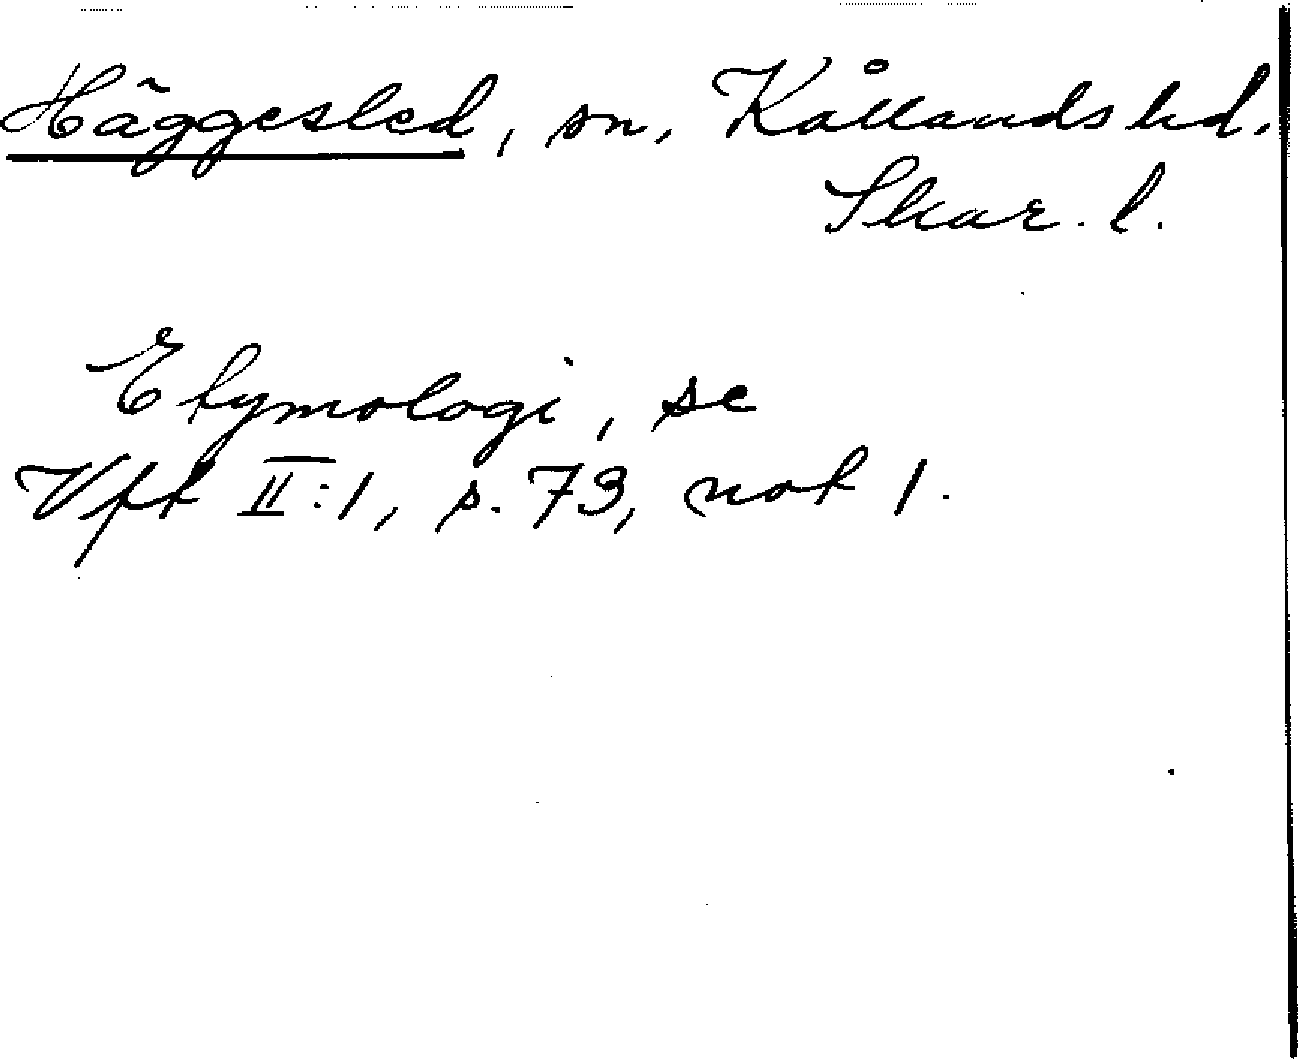 Häggesled, sn, Kållands hd.
Skar. l.
Etymologi, se
Vft II:1, s. 73, not 1.